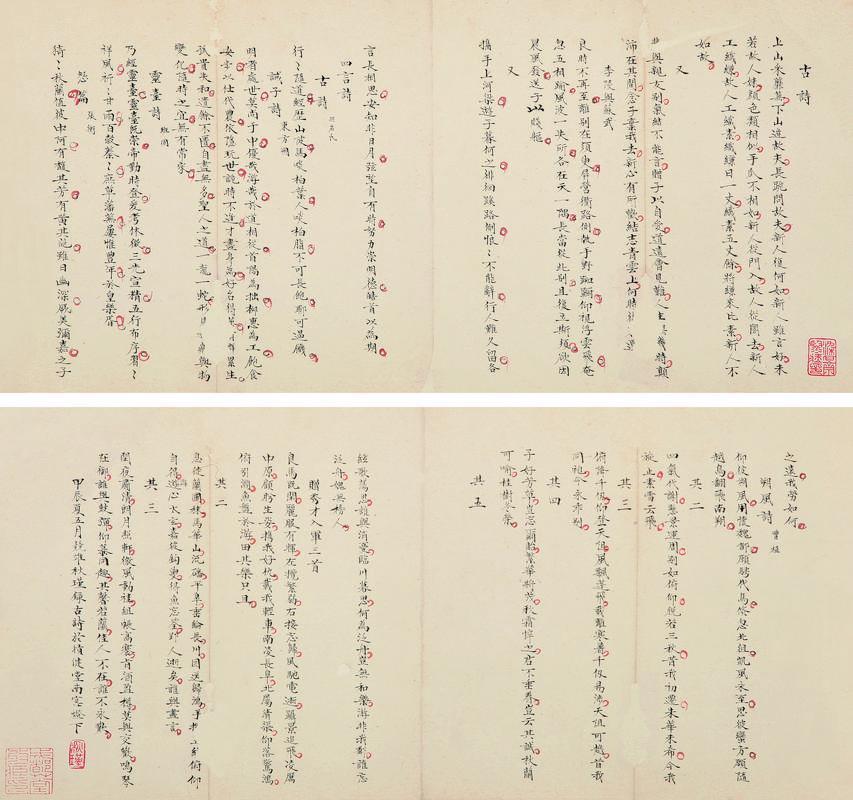 古詩
上山采蘼蕪下山逢故夫長跪問故夫新人復何如新人雖言好未
若故人姝顏色類相似手爪不相如新人從門入故人從閣去新人
工織縑故人工織素織縑日一丈織素五丈餘將縑來比素新人不
如故
又
悲與親友別氣結不能言贈子以自愛道遠會見難人生無幾時顛
沛在其間念子棄我去新心有所歡結志青雲上何時復來還
李陵與蘇武
良時不再至離別在須臾屏營衢路側執手野踟躕仰視浮雲飛奄
忽互相踰風波一失所各在天一隅長當從此別且復立斯須欲因
晨風發送子以賤軀
又
攜手上河梁遊子暮何之徘徊蹊路側悢〻不能辭行人難久留各
言長相思安知非日月弦望自有時努力崇明德皓首以為期
四言詩
古詩 名氏
行〻隨道經歷山陂馬啖柏葉人啖柏脂不可長飽聊可遏饑
誡子詩 東方朔
明者處世莫尚于中優哉游哉於道相從首陽為拙柳惠為工飽食
安步以仕代農依隱玩世詭時不逢才盡身危好名得華有群累生
孤貴失和遺餘不匱自盡無多聖人之道一龍一蛇形見神藏與物
變化隨時之宜無有常家
靈臺詩 班固
乃經靈臺靈臺既崇帝勤時登爰考休徵三光宣精五行布序習〻
祥風祁〻甘雨百穀蓁〻庶草蕃蕪屢惟豐年於皇樂胥
怨篇 張衡
猗〻秋蘭植彼中阿有馥其芳有黃其葩雖曰幽深厥美彌嘉之子
之遠我勞如何
朔風詩 曹植
仰彼朔風用懷魏都願騁代馬倏忽北徂凱風永至思彼蠻方願隨
越鳥翻飛南翔
其二
四氣代謝懸景運周別如俯仰脫若三秋昔我初遷朱華未希今我
旋止素雪云飛
其三
俯降千仞仰登天阻風飄蓬飛載離寒暑千仞易陟天阻可越昔我
同袍今永乖別
其四
子好芳草豈忘爾貽繁華將茂秋霜悴之君不垂眷豈云其誠秋蘭
可喻桂樹冬榮
其五
絃歌蕩思誰與消憂臨川暮思何為泛舟豈無和樂游非我鄰誰忘
泛舟愧無榜人
贈秀才入軍三首
良馬既閑麗服有輝左攬繁弱右接忘歸風馳電逝躡景追飛凌厲
中原顧盼生姿攜我好仇載我輕車南凌長阜北厲清渠仰落驚鴻
俯引淵魚盤於游田其樂只且
其二
息徒蘭圃秣馬華山流磻平皋垂綸長川目送歸鴻手揮五絃俯仰
自得遊心太玄嘉彼釣叟得魚忘筌郢人逝矣誰與盡言
其三
閑夜肅清朗月照軒微風動袿組帳高褰旨酒盈樽莫與交歡鳴琴
在御誰與鼓彈仰慕同趣其馨若蘭佳人不在能不永歎
甲辰夏五月秋瑾錄古詩於積健堂南窓燈下
秋瑾